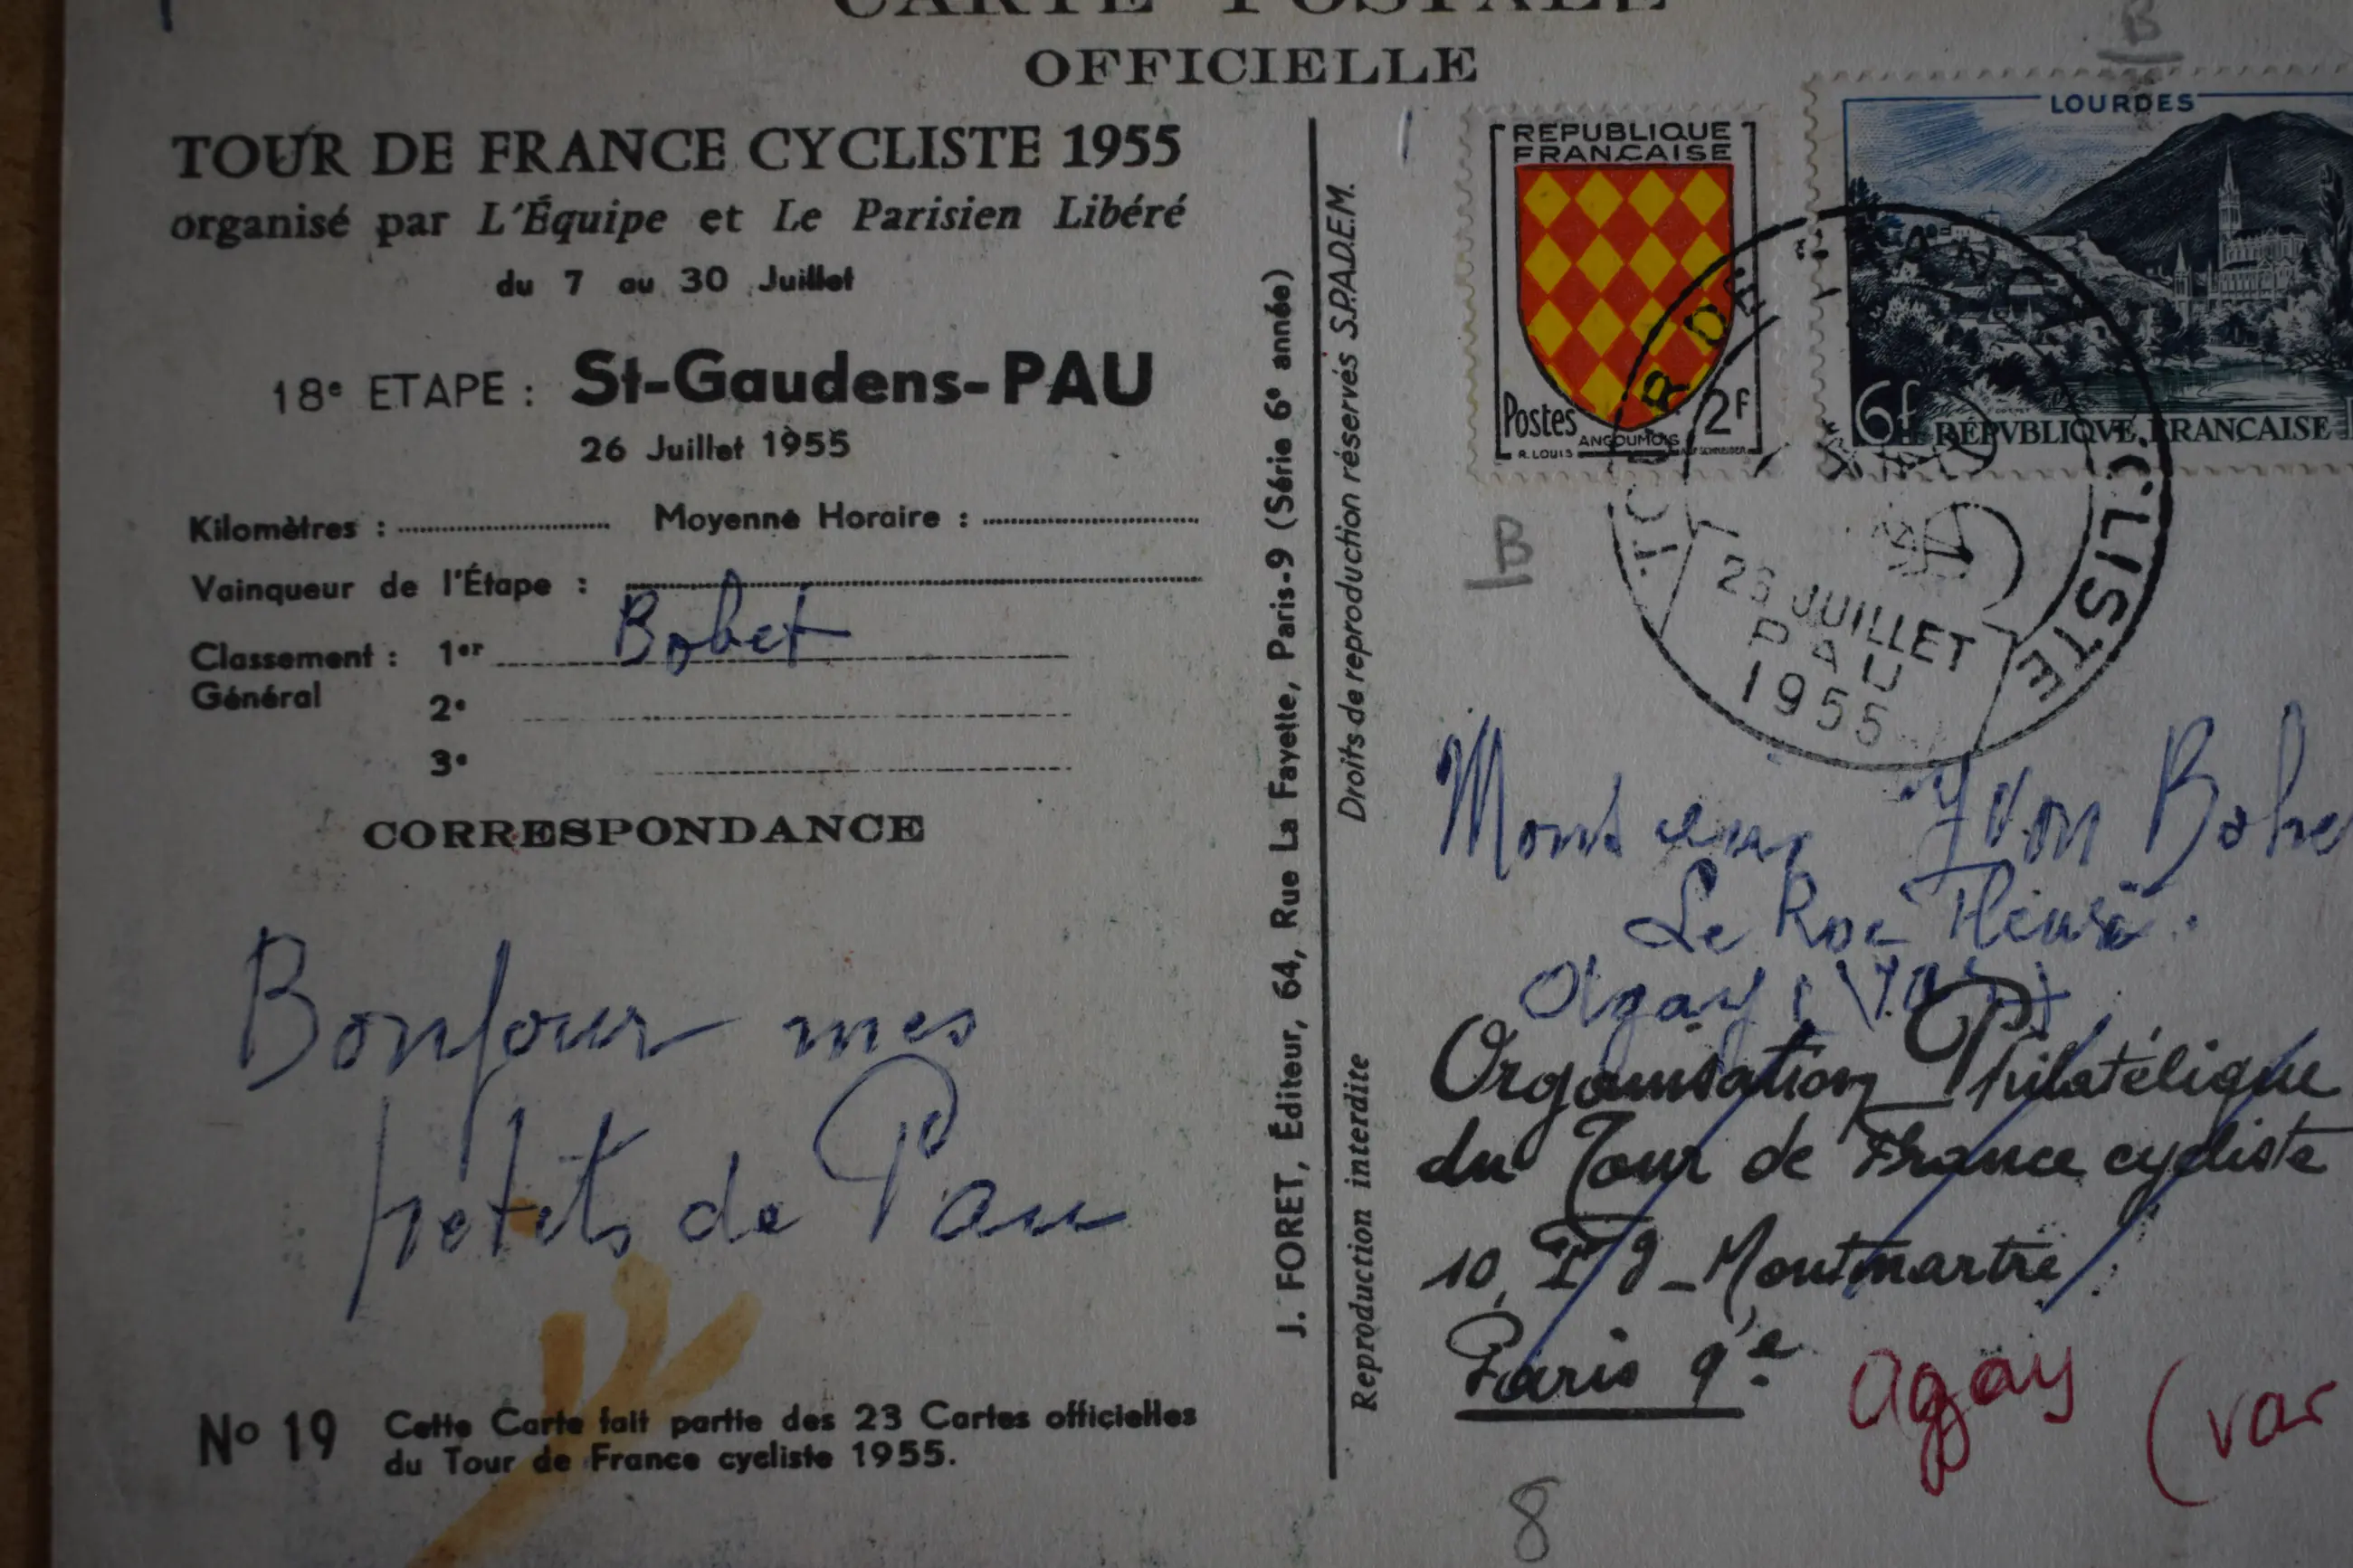 CARTE POSTALE
OFFICIELLE
TOUR DE FRANCE CYCLISTE 1955
organisé par L'Équipe et Le Parisien Libéré
du 7 au 30 Juillet
18e ETAPE : St-Gaudens-PAU
26 Juillet 1955
Kilomètres : Moyenne Horaire :
Vainqueur de l'Étape :
Bobet
Classement : 1er
Général
2e
3e
CORRESPONDANCE
Bonjour mes
petits de Pau
No 19 Cette Carte fait partie des 23 Cartes officielles
du Tour de France cycliste 1955.
J. FORET, Éditeur, 64, Rue La Fayette, Paris-9 (Série 6e année)
Reproduction interdite Droits de reproduction réservés S.P.A.D.E.M.
B
REPUBLIQUE
FRANÇAISE
Postes 2F
ANGOUMOIS
R. LOUIS
LOURDES
6f RÉPVBLIQVE FRANCAISE
B
TOUR DE FRANCE CYCLISTE
26 JUILLET
PAU
1955
Monsieur Yvon Bobe
Le Roc Fleuri.
Agay (Var)
Organisation Philatélique
du Tour de France cycliste
10, Fg-Montmartre
Paris 9e
Agay (var
8